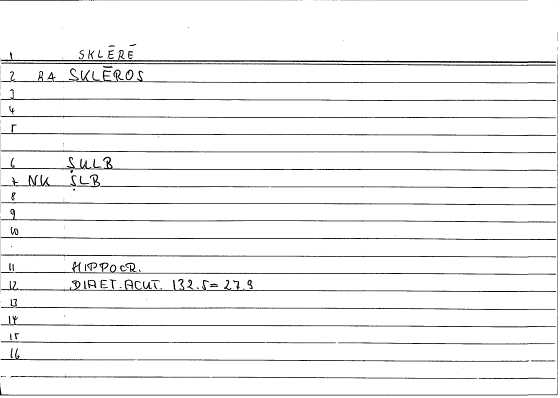 1 SKLĒRĒ
2 RA SKLĒROS
3
4
5
6 ṢULB
7 NK ṢLB
8
9
10
11 HIPPOCR.
12 DIAET.ACUT. 132.5= 27.9
13
14
15
16